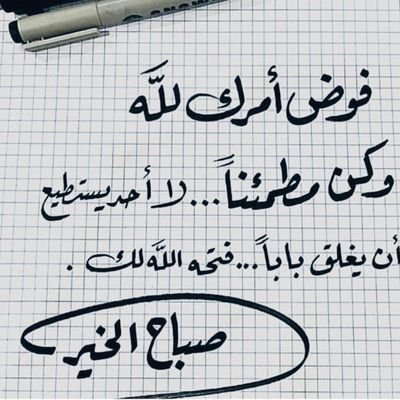 فوض أمرك للَّه
وكن مطمئناً...لا أحد يستطيع
أن يغلق باباً...فتحه اللَّه لك .
صباح الخير